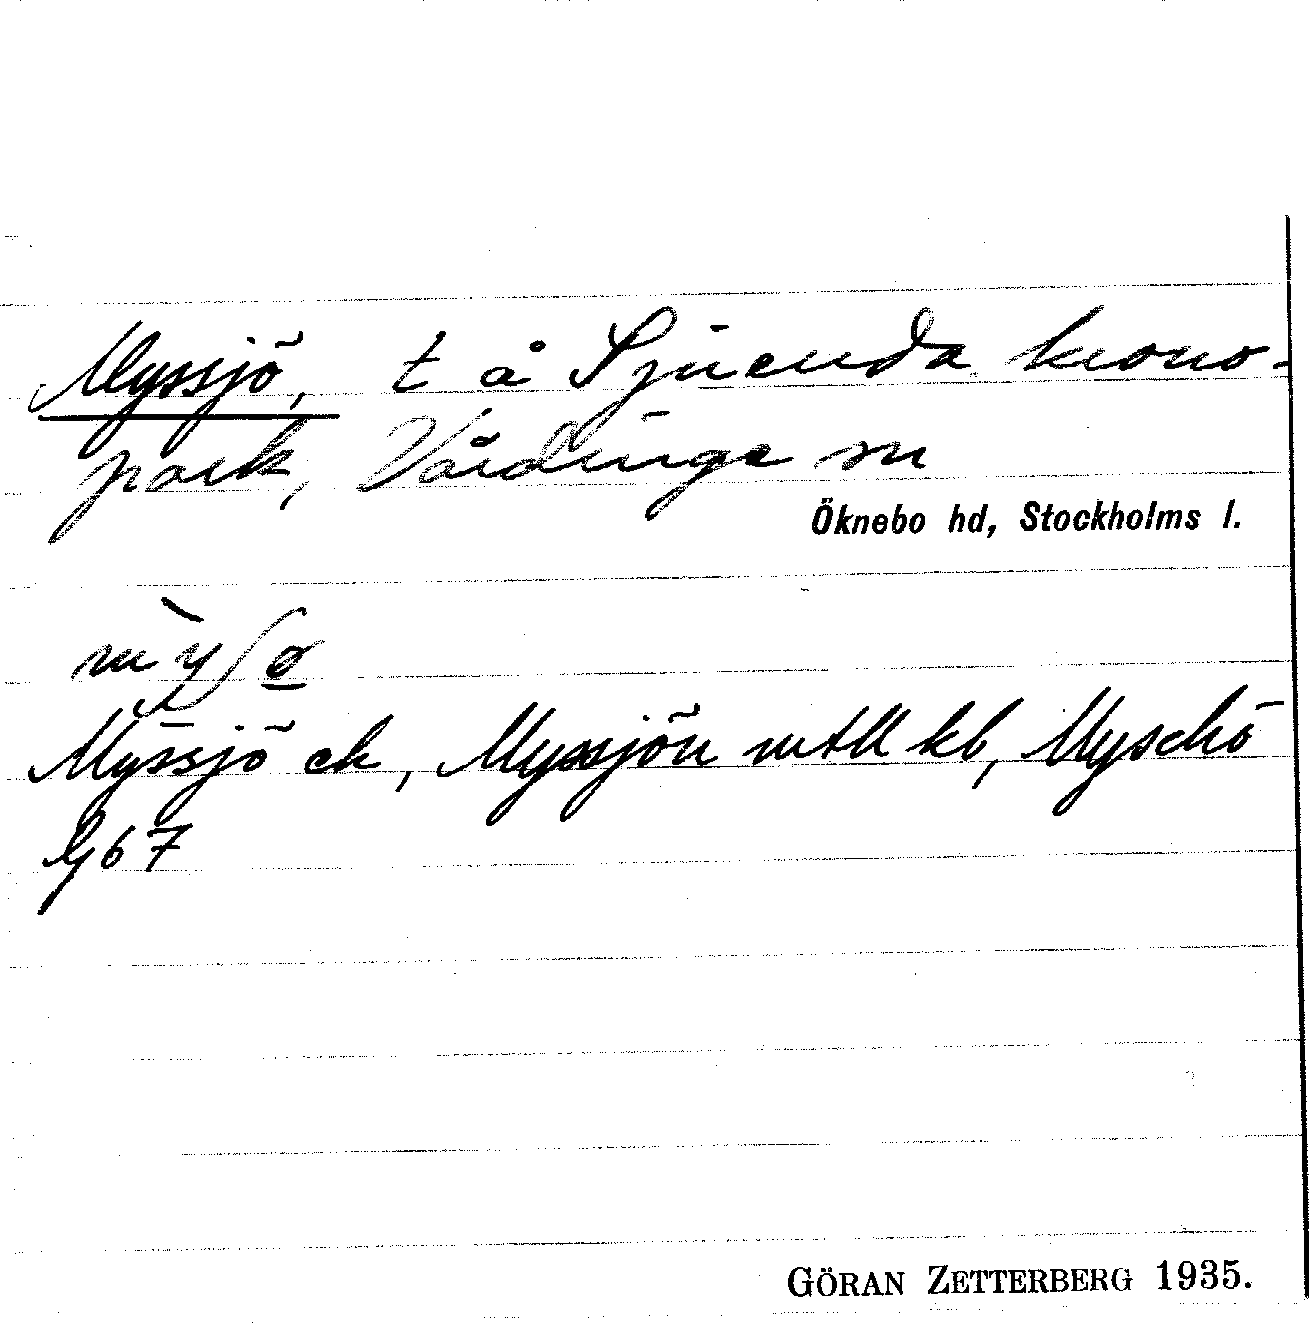 Myssjö, t å Sjuenda krono-
park, Vårdinge sn
Öknebo hd, Stockholms l.
mỳʃø
Myssjö ek, Myssjön mtll kb, Myschö
Gg 67
GÖRAN ZETTERBERG 1935.